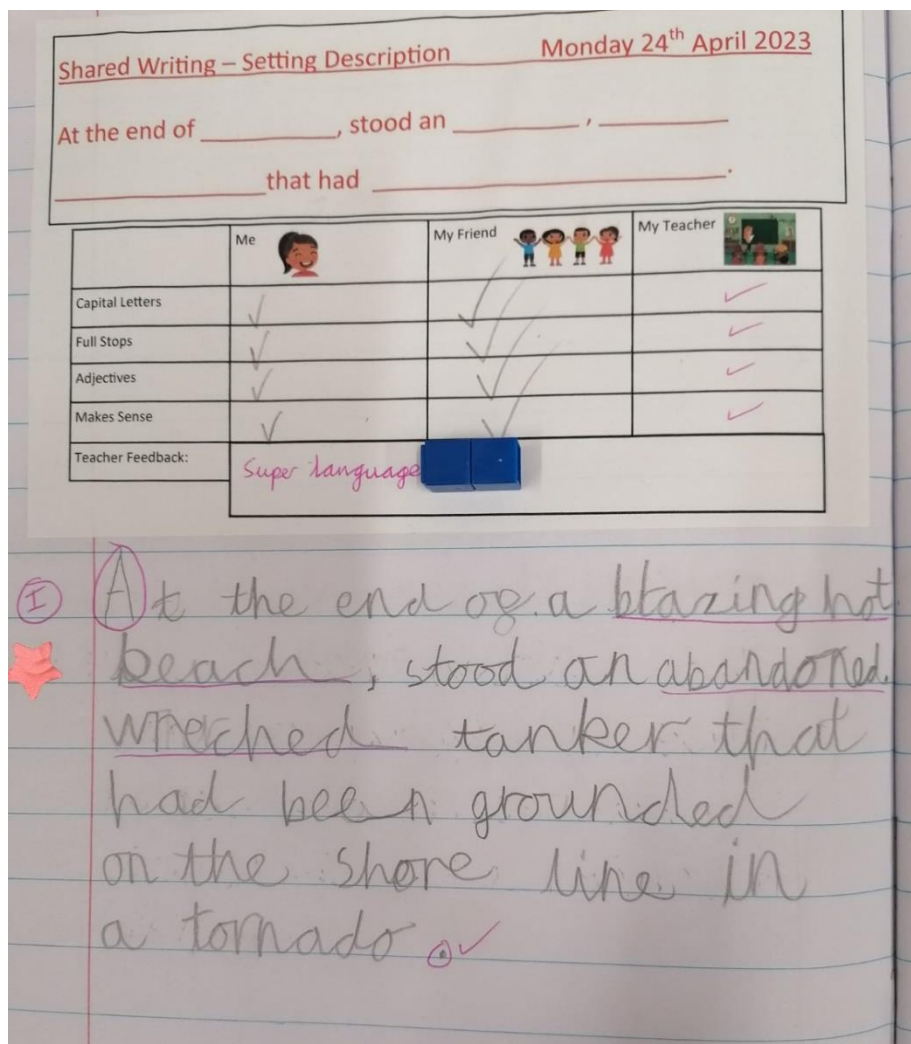 Shared Writing – Setting Description Monday 24th April 2023
At the end of __________, stood an __________, __________
__________ that had __________.
Me My Friend My Teacher
Capital Letters
Full Stops
Adjectives
Makes Sense
Teacher Feedback: Super language
I At the end of a blazing hot
beach, stood an abandoned
wreched tanker that
had been grounded
on the shore line in
a tornado.